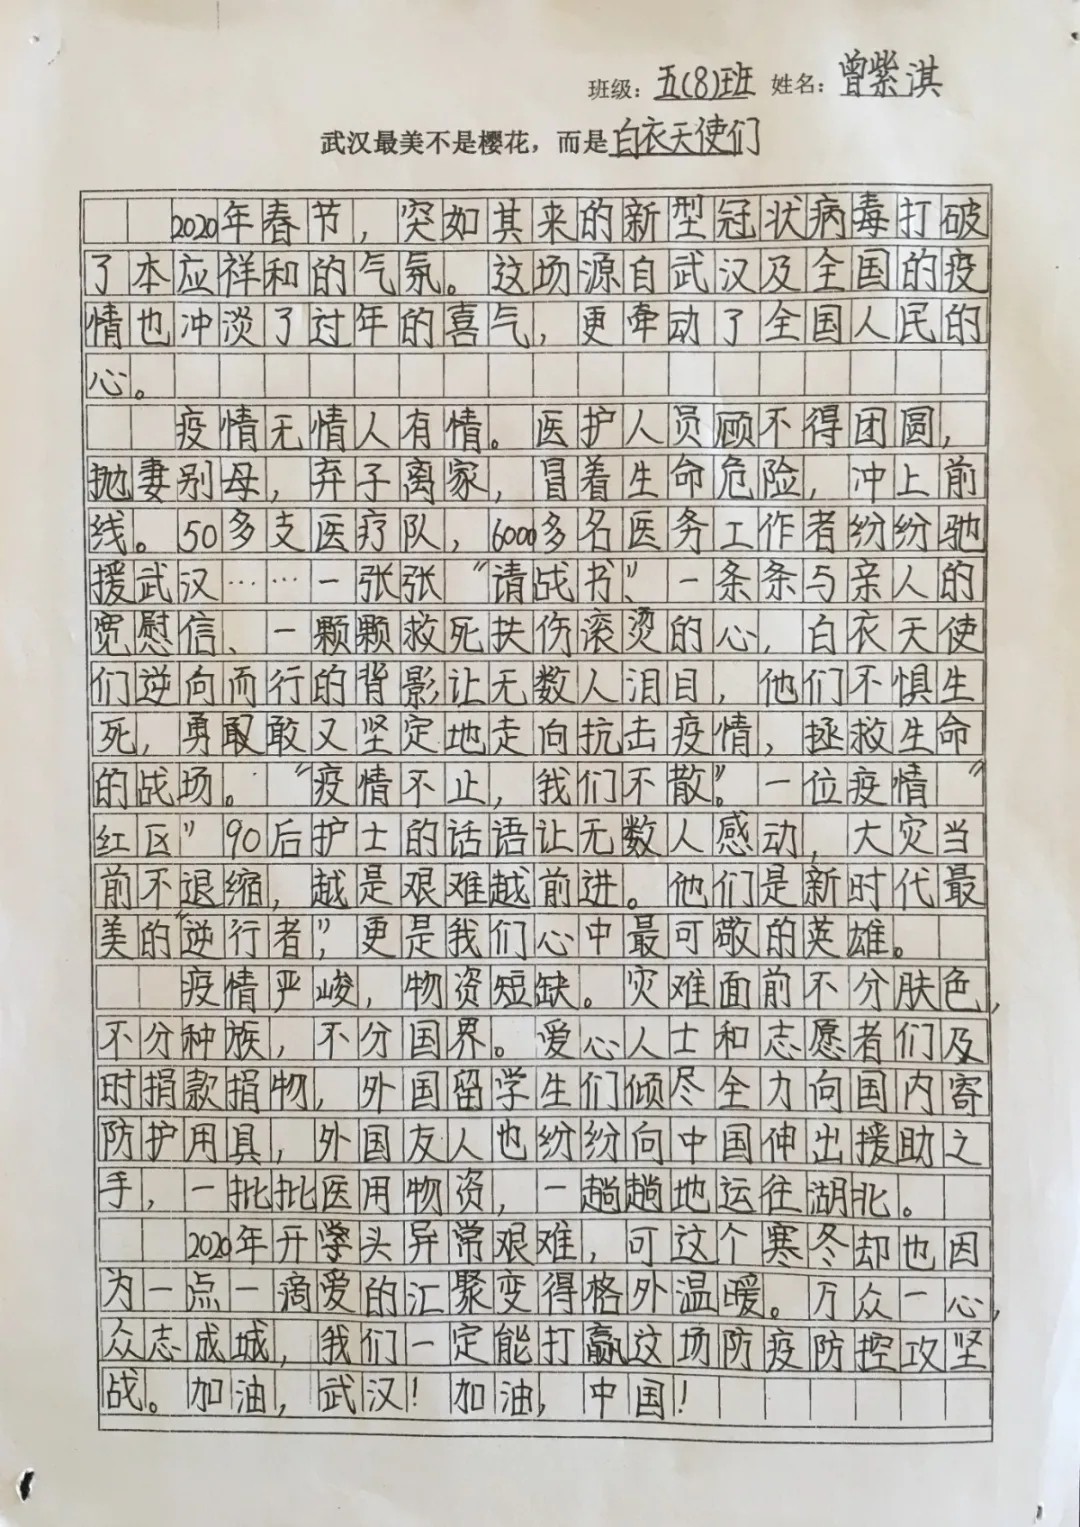 班级：五(8)班 姓名：曾紫淇
武汉最美不是樱花，而是白衣天使们
2020年春节，突如其来的新型冠状病毒打破
了本应祥和的气氛。这场源自武汉及全国的疫
情也冲淡了过年的喜气，更牵动了全国人民的
心。
疫情无情人有情。医护人员顾不得团圆，
抛妻别母，弃子离家，冒着生命危险，冲上前
线。50多支医疗队，6000多名医务工作者纷纷驰
援武汉……一张张“请战书”、一条条与亲人的
宽慰信、一颗颗救死扶伤滚烫的心，白衣天使
们逆向而行的背影让无数人泪目，他们不惧生
死，勇敢敢又坚定地走向抗击疫情，拯救生命
的战场。“疫情不止，我们不散”。一位疫情“
红区”90后护士的话语让无数人感动，大灾当
前不退缩，越是艰难越前进。他们是新时代最
美的“逆行者”，更是我们心中最可敬的英雄。
疫情严峻，物资短缺。灾难面前不分肤色，
不分种族，不分国界。爱心人士和志愿者们及
时捐款捐物，外国留学生们倾尽全力向国内寄
防护用具，外国友人也纷纷向中国伸出援助之
手，一批批医用物资，一趟趟地运往湖北。
2020年开学头异常艰难，可这个寒冬却也因
为一点一滴爱的汇聚变得格外温暖。万众一心，
众志成城，我们一定能打赢这场防疫防控攻坚
战。加油，武汉！加油，中国！